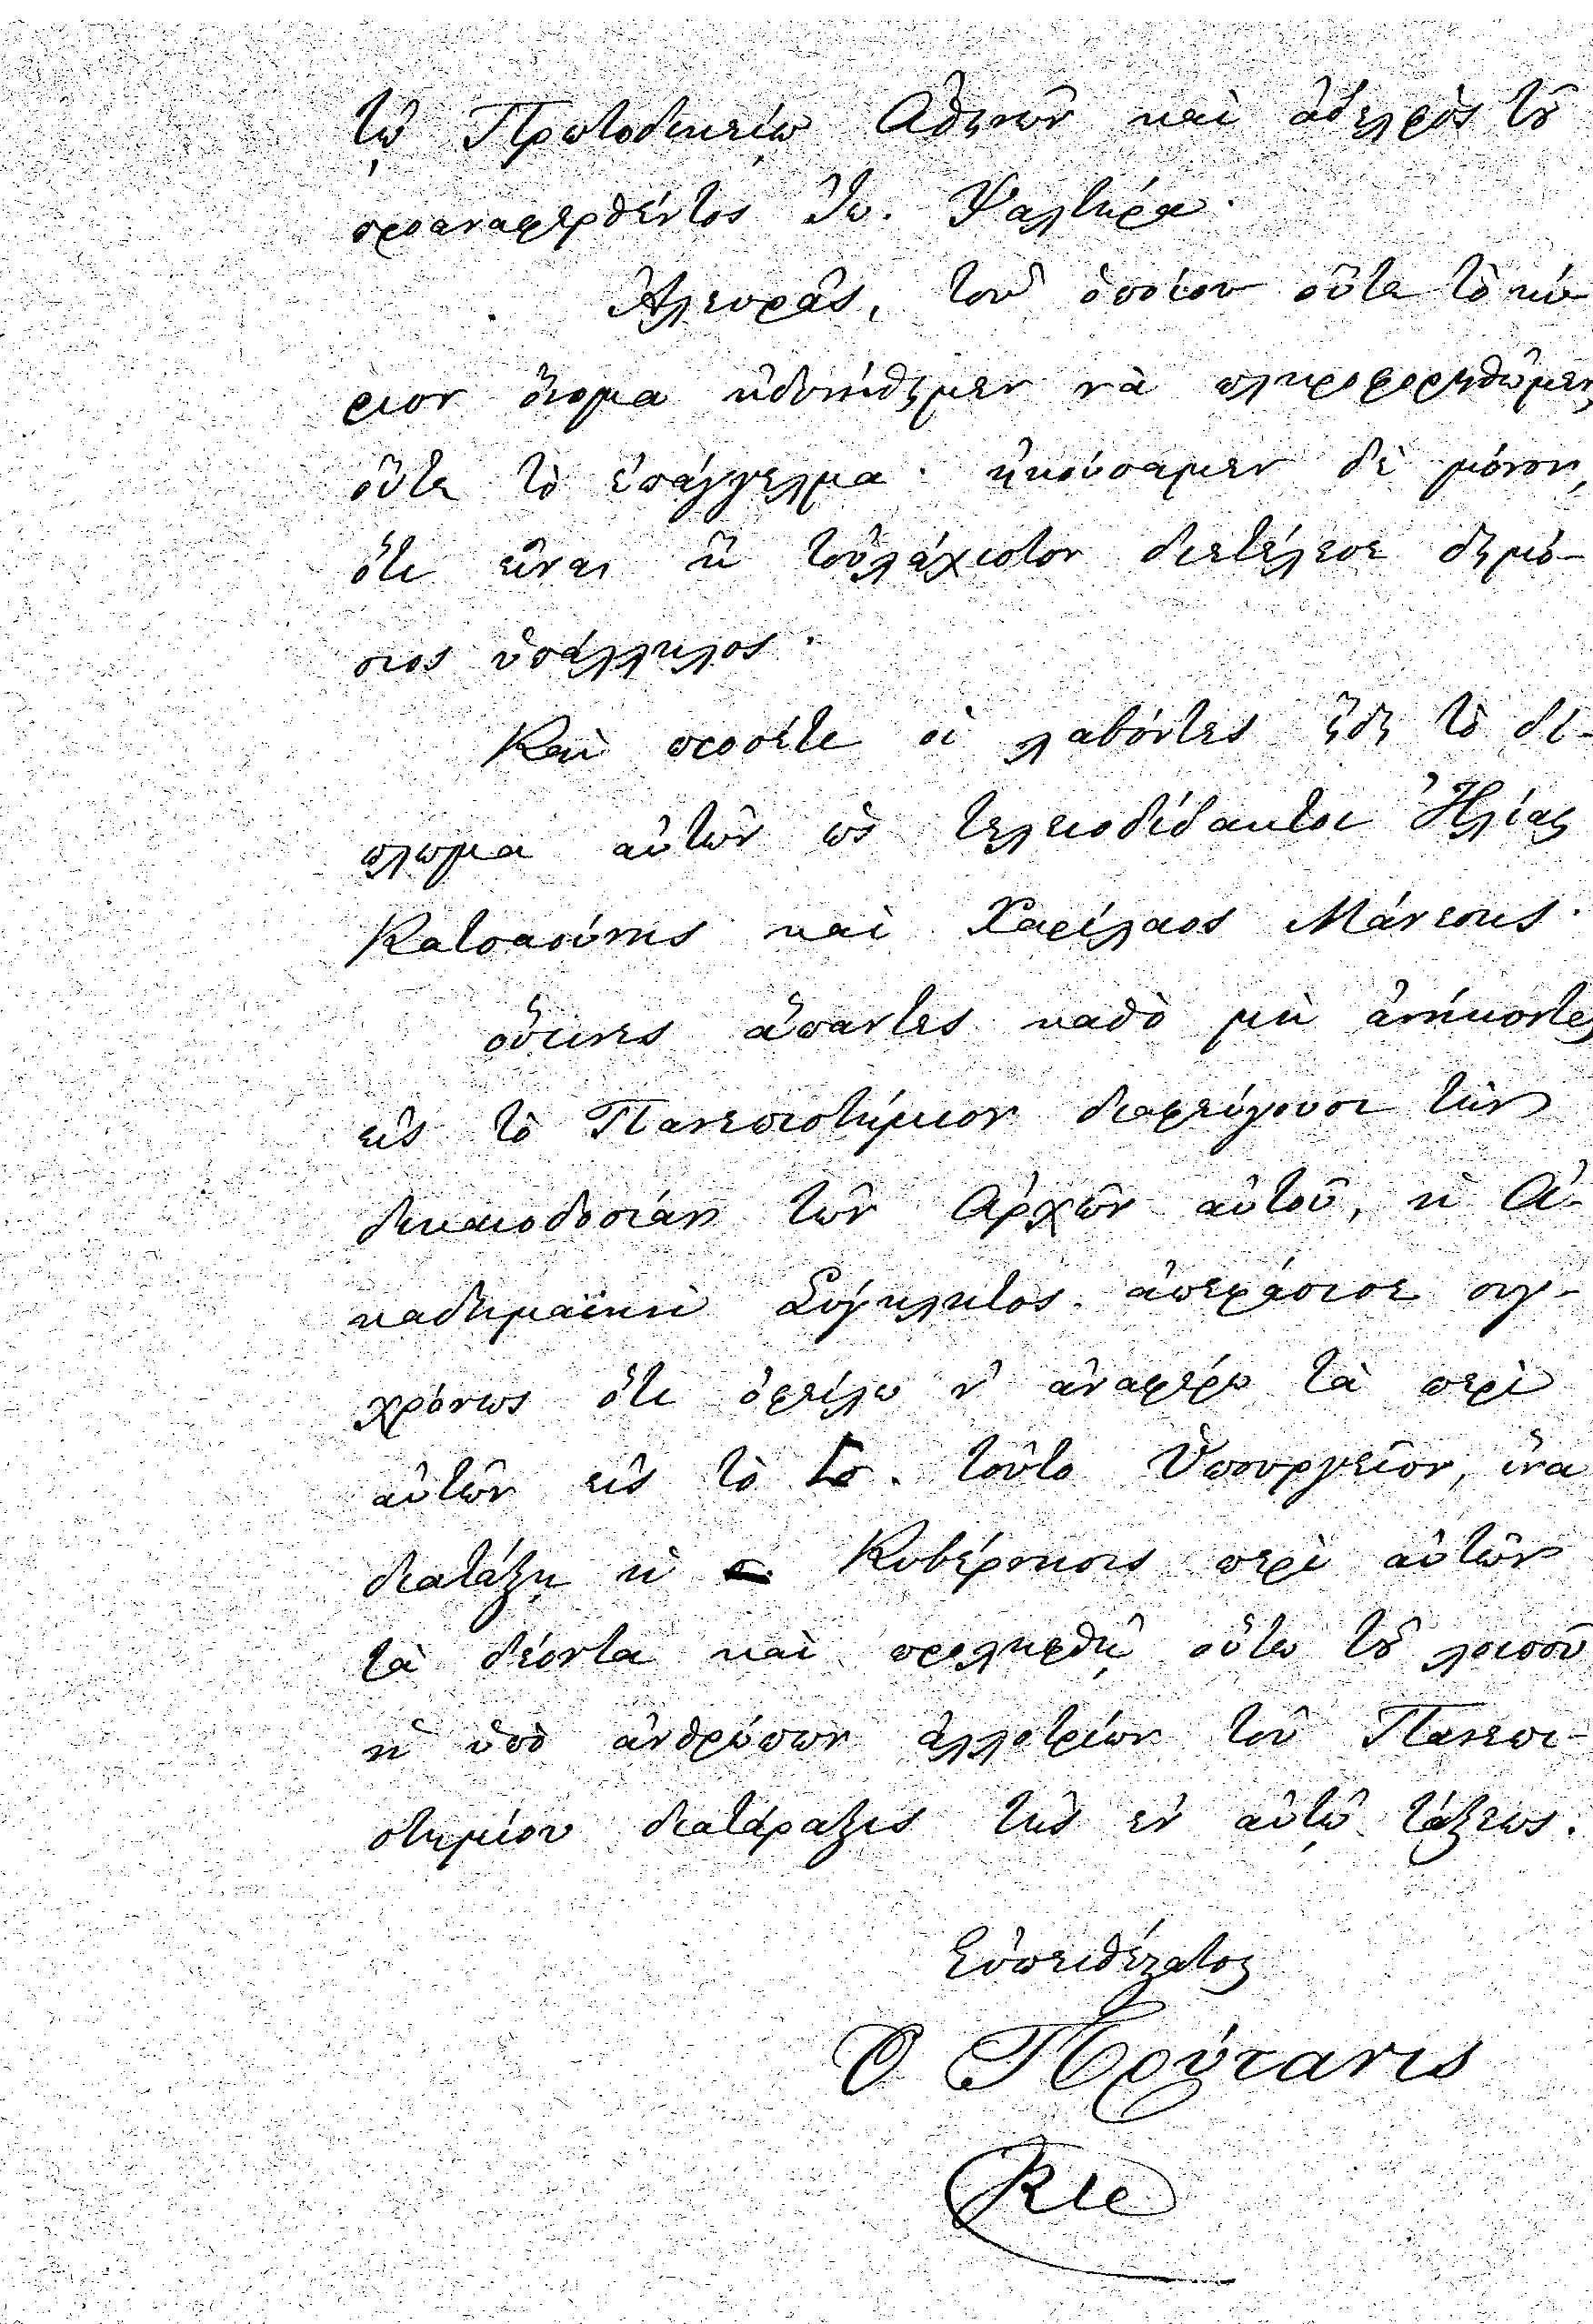 τῷ Πρωτοδικείῳ Ἀθηνῶν καὶ ἀδελφὸς τοῦ
προαναφερθέντος Ἰω. Ψαλτήρα.
Ἀλευρᾶς, τοῦ ὁποίου οὔτε τὸ κύ-
ριον ὄνομα ἠδυνήθημεν νὰ πληροφορηθῶμεν,
οὔτε τὸ ἐπάγγελμα· ἠκούσαμεν δὲ μόνον,
ὅτι εἶναι ἢ τοὐλάχιστον διετέλεσε δημό-
σιος ὑπάλληλος.
Καὶ προσέτι οἱ λαβόντες ἤδη τὸ δί-
πλωμα αὐτῶν ὡς τελειοδίδακτοι Ἠλίας
Κατσαούνης καὶ Χαρίλαος Μάνεσης.
οἵτινες ἅπαντες καθὸ μὴ ἀνήκοντες
εἰς τὸ Πανεπιστήμιον διαφεύγουσι τὴν
δικαιοδοσίαν τῶν Ἀρχῶν αὐτοῦ, ἡ Ἀ-
καδημαϊκὴ Σύγκλητος ἀπεφάσισε συγ-
χρόνως ὅτι ὀφείλω ν' ἀναφέρω τὰ περὶ
αὐτῶν εἰς τὸ Σο. τοῦτο Ὑπουργεῖον, ἵνα
διατάξῃ ἡ σ. Κυβέρνησις περὶ αὐτῶν
τὰ δέοντα καὶ προληφθῇ οὕτω τοῦ λοιποῦ
ἡ ὑπὸ ἀνθρώπων ἀλλοτρίων τοῦ Πανεπι-
στημίου διατάραξις τῆς ἐν αὐτῷ τάξεως.
Εὐπειθέστατος
Ὁ Πρύτανις